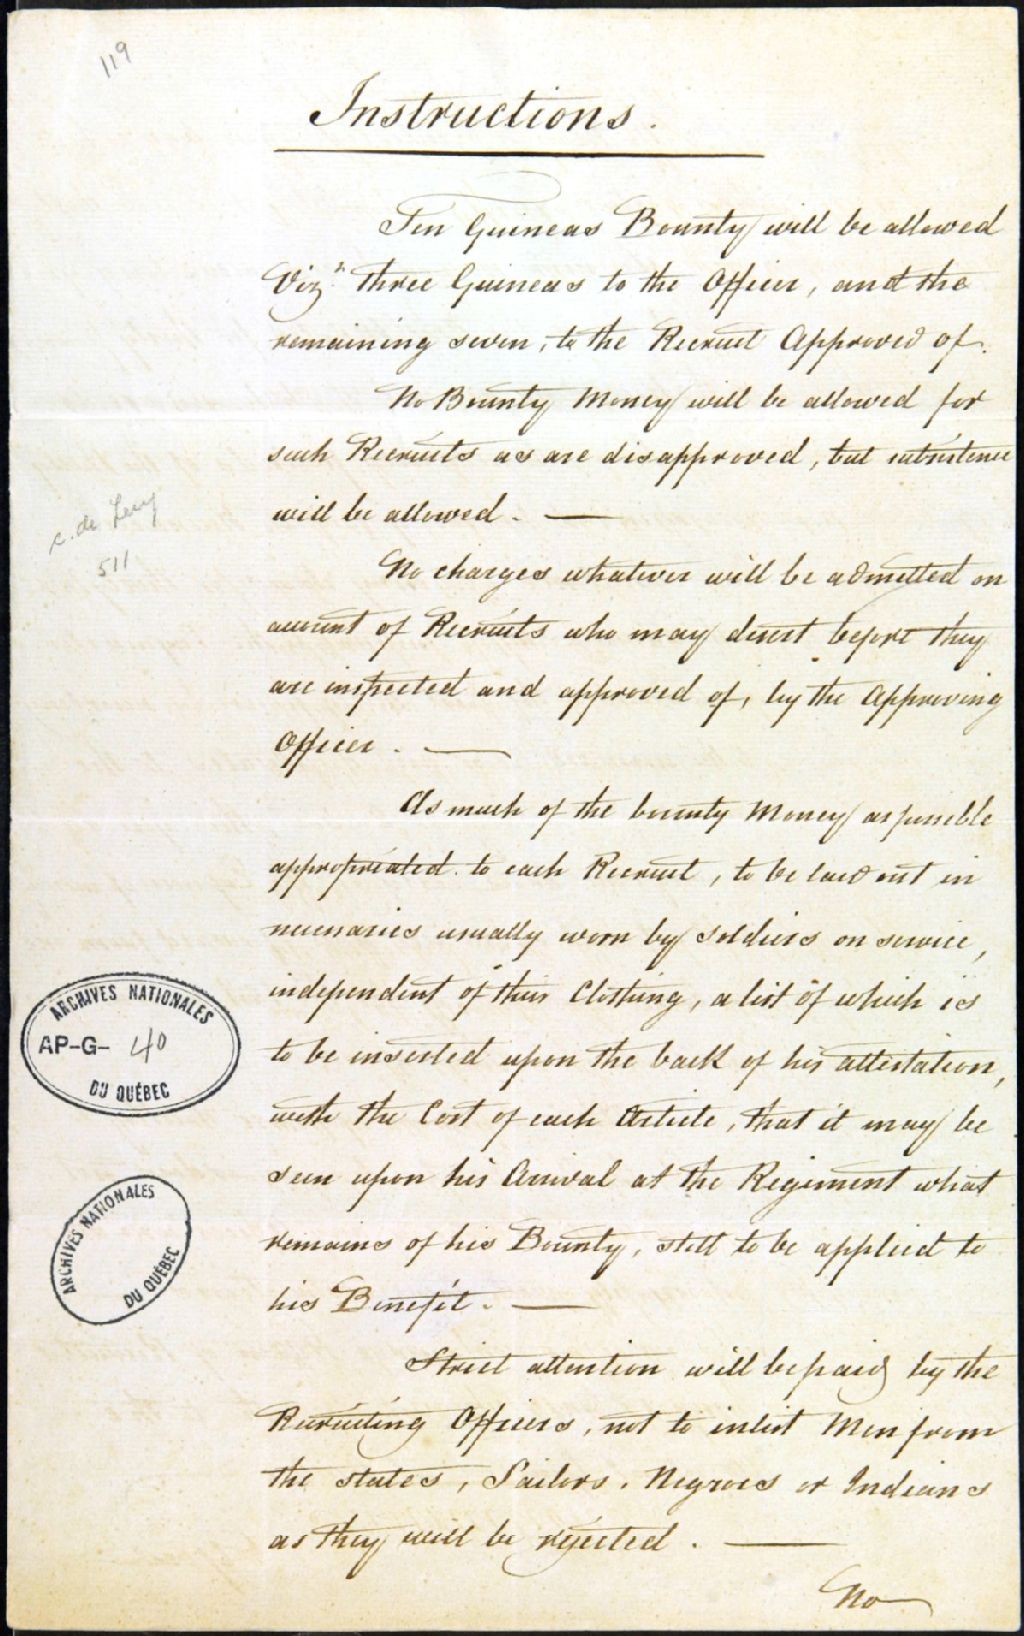 119
Instructions.
Ten Guineas Bounty will be allowed
Vizt. three Guineas to the Officer, and the
remaining seven, to the Recruit Approved of.
No Bounty Money will be allowed for
such Recruits as are disapproved, but subsistence
will be allowed. —
No charges whatever will be admitted on
account of Recruits who may desert before they
are inspected and approved of, by the Approving
Officer. —
As much of the bounty Money as possible
appropriated to each Recruit, to be laid out in
necessaries usually worn by soldiers on service,
independent of their Clothing, a list of which is
to be inserted upon the back of his attestation,
with the Cost of each Article, that it may be
seen upon his Arrival at the Regiment what
remains of his Bounty, still to be applied to
his Benefit. —
Strict attention will be paid by the
Recruiting Officers, not to inlist Men from
the states, Sailors, Negroes or Indians
as they will be rejected. —
No
c. de Lery
511
ARCHIVES NATIONALES
AP-G- 40
DU QUÉBEC
ARCHIVES NATIONALES
DU QUÉBEC